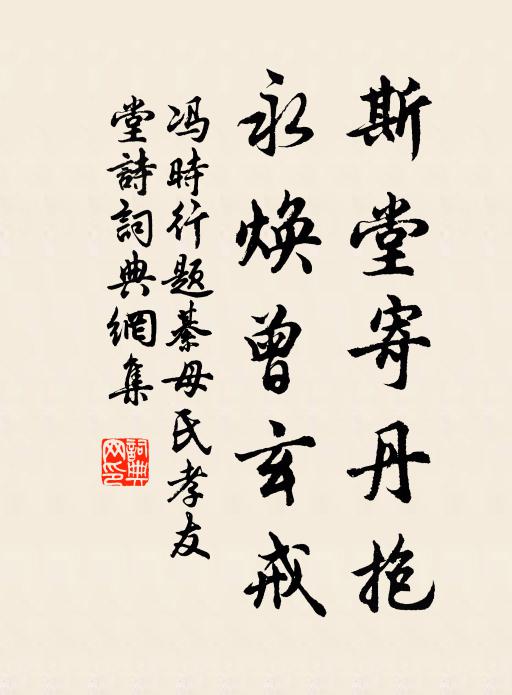 斯堂寄丹抱
永焕曾玄戒
冯時行题綦母氏孝友
堂詩詞典網集
詞典網印